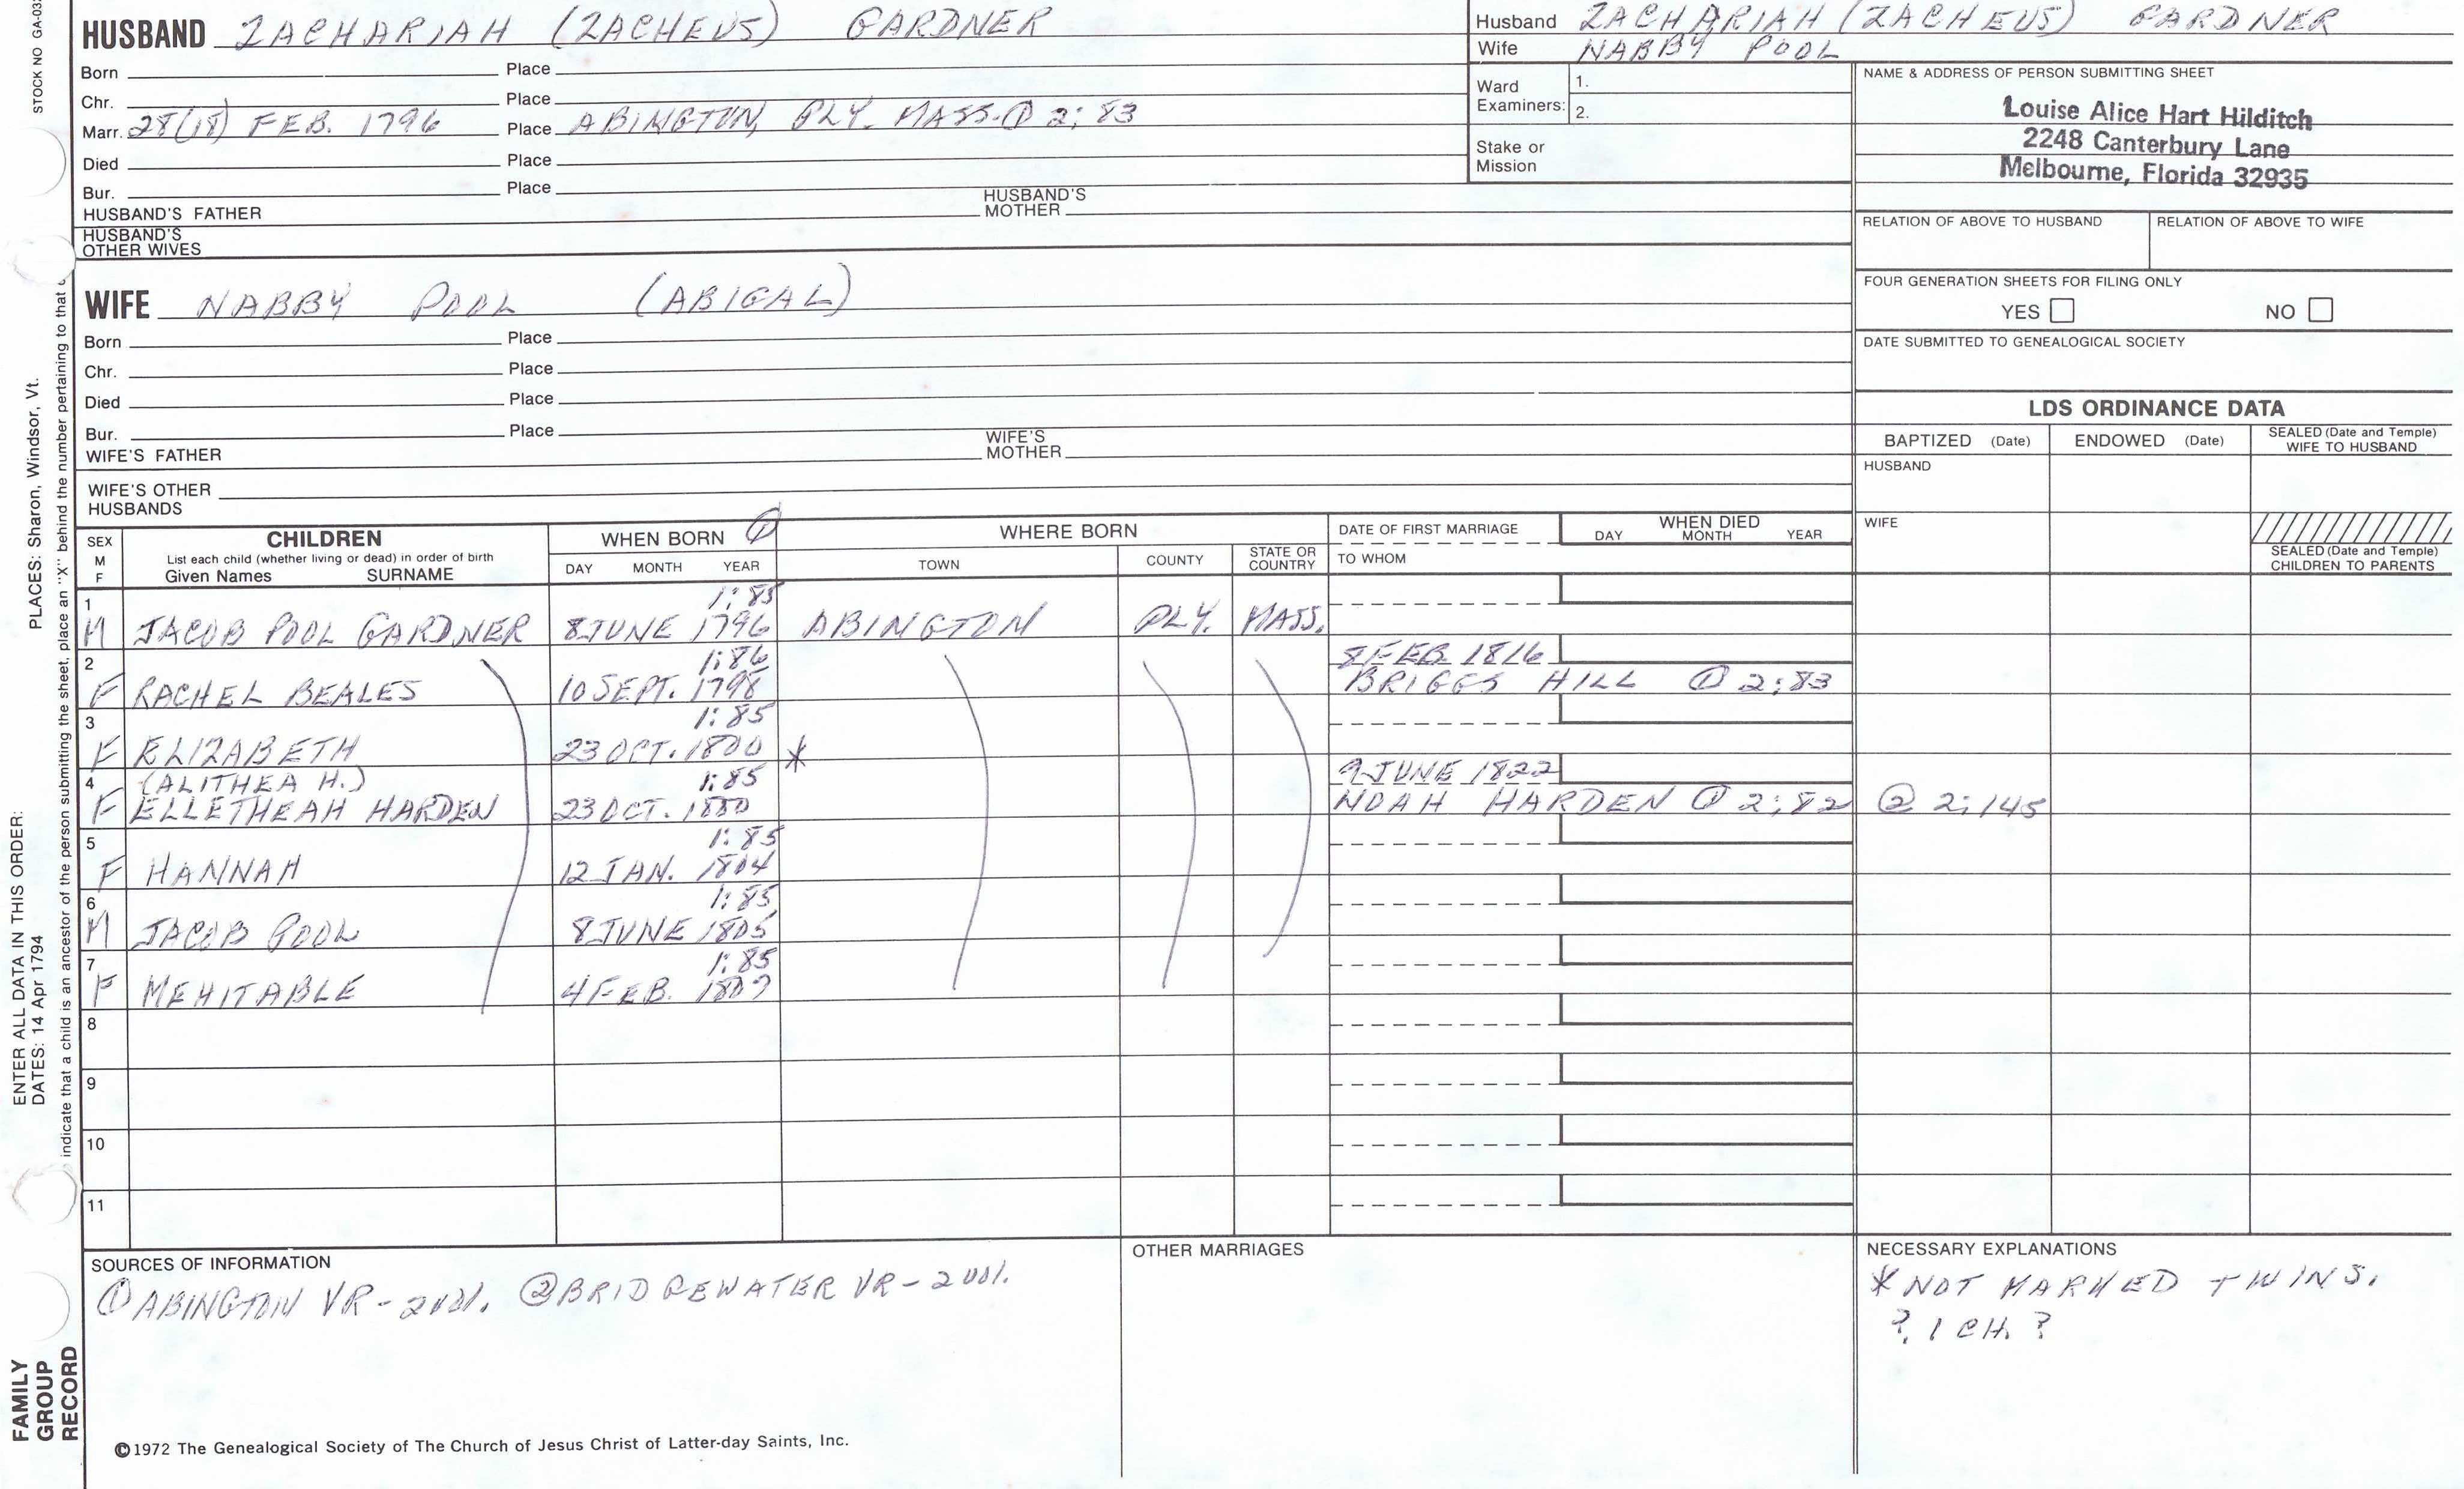 STOCK NO GA-03
HUSBAND ZACHARIAH (ZACHEUS) GARDNER
Born Place
Chr. Place
Marr. 28(18) FEB. 1796 Place ABINGTON, PLY. MASS. ① 2:83
Died Place
Bur. Place
HUSBAND'S FATHER HUSBAND'S MOTHER
HUSBAND'S OTHER WIVES
Husband ZACHARIAH (ZACHEUS) GARDNER
Wife NABBY POOL
Ward Examiners: 1.
2.
Stake or Mission
NAME & ADDRESS OF PERSON SUBMITTING SHEET
Louise Alice Hart Hilditch
2248 Canterbury Lane
Melbourne, Florida 32935
RELATION OF ABOVE TO HUSBAND RELATION OF ABOVE TO WIFE
FOUR GENERATION SHEETS FOR FILING ONLY
YES NO
DATE SUBMITTED TO GENEALOGICAL SOCIETY
WIFE NABBY POOL (ABIGAL)
Born Place
Chr. Place
Died Place
Bur. Place
WIFE'S FATHER WIFE'S MOTHER
WIFE'S OTHER HUSBANDS
LDS ORDINANCE DATA
BAPTIZED (Date) ENDOWED (Date) SEALED (Date and Temple) WIFE TO HUSBAND
HUSBAND
WIFE
SEALED (Date and Temple) CHILDREN TO PARENTS
SEX M F
CHILDREN
List each child (whether living or dead) in order of birth
Given Names SURNAME
WHEN BORN ①
DAY MONTH YEAR
WHERE BORN
TOWN COUNTY STATE OR COUNTRY
DATE OF FIRST MARRIAGE
TO WHOM
WHEN DIED
DAY MONTH YEAR
1 1:85
M JACOB POOL GARDNER 8 JUNE 1796 ABINGTON PLY. MASS.
2 1:86 8 FEB. 1816
F RACHEL BEALES 10 SEPT. 1798 BRIGGS HILL ① 2:83
3 1:85
F ELIZABETH 23 OCT. 1800 *
4 (ALITHEA H.) 1:85 9 JUNE 1822
F ELLETHEAH HARDEN 23 OCT. 1800 NOAH HARDEN ① 2:82 ② 2:145
5 1:85
F HANNAH 12 JAN. 1804
6 1:85
M JACOB POOL 8 JUNE 1805
7 1:85
F MEHITABLE 4 FEB. 1807
8
9
10
11
SOURCES OF INFORMATION
① ABINGTON VR - 2 VOL. ② BRIDGEWATER VR - 2 VOL.
OTHER MARRIAGES
NECESSARY EXPLANATIONS
* NOT MARKED TWINS.
? 1 CH. ?
©1972 The Genealogical Society of The Church of Jesus Christ of Latter-day Saints, Inc.
PLACES: Sharon, Windsor, Vt.
indicate that a child is an ancestor of the person submitting the sheet, place an "X" behind the number pertaining to that
ENTER ALL DATA IN THIS ORDER:
DATES: 14 Apr 1794
FAMILY
GROUP
RECORD